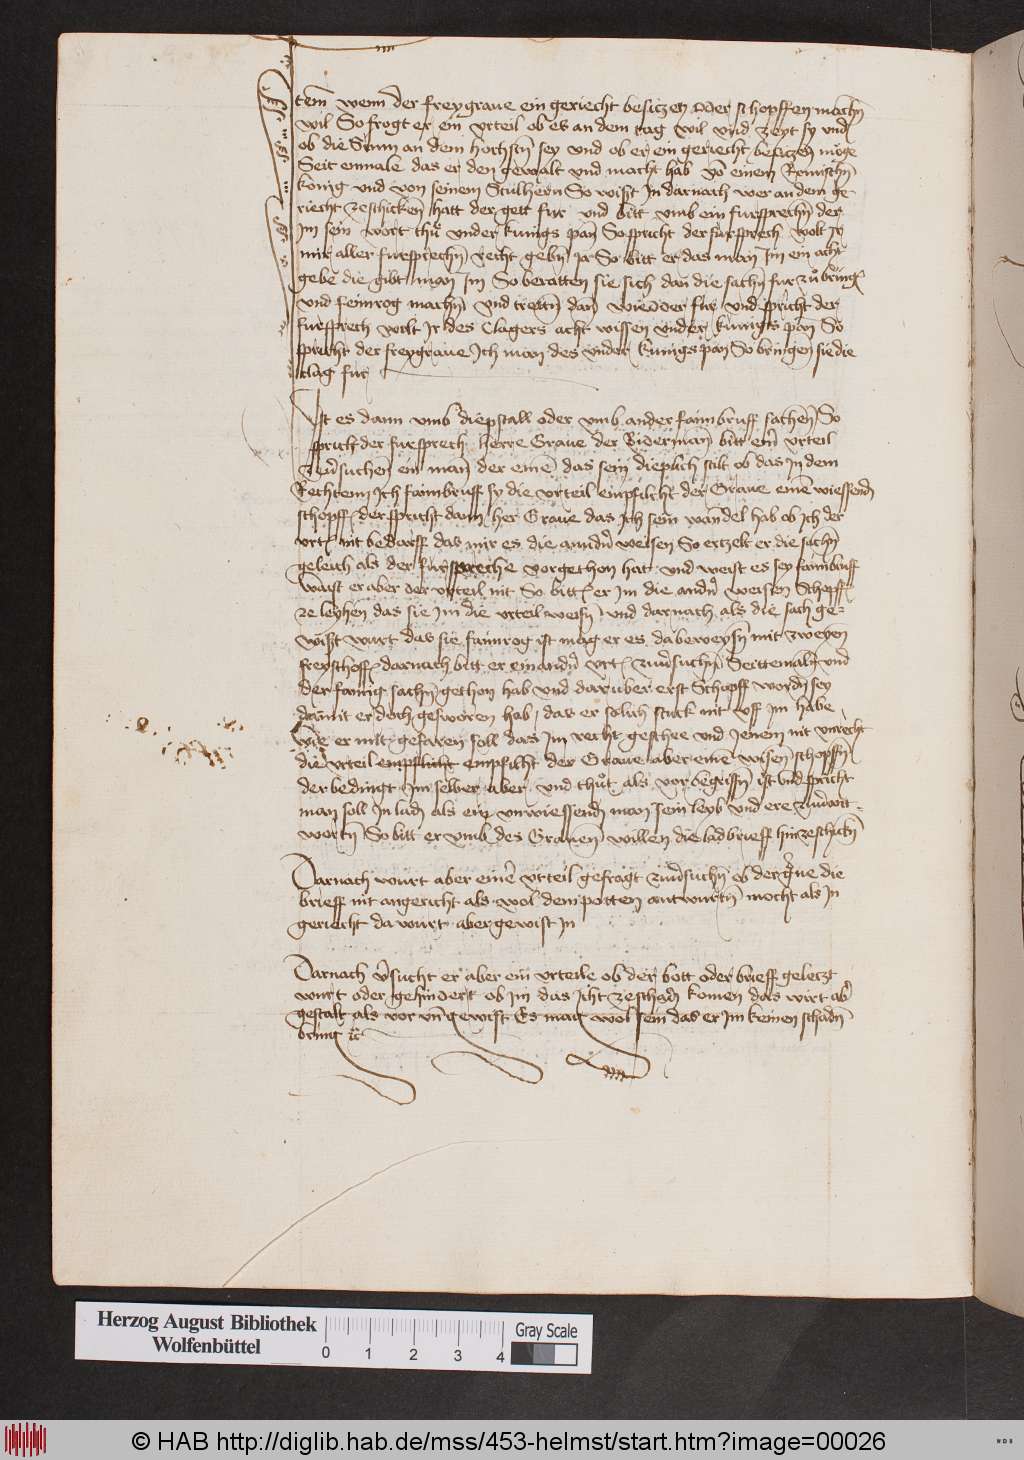 Item wenn der freygraue ein geriecht besiczen oder schopffen machn
wil So frogt er ein vrteil ob es an dem tag wil vnd zeyt sy vnd
ob die Sunn an dem hochstn sey vnd ob er ein geriecht besiczen möge
Seit enmale das er den gewalt vnd macht hab vo einem Romischn
konig vnd von seinem Stulhern So wist In darnach wer an dem ge
riecht zeschicken hatt der gett fur vnd bitt vmb ein fursprechn der
Im sein wort thu vnder kunigs pan So spricht der fursprech wolt Ir
mir aller fursprechn recht gebn Ja So bitt er das man Im ein acht
gebe die gibt man Im So beratten sie sich dan die sachn fur zu bring
vnd feimrog machn vnd trettn dan wider fur vnd spricht der
fursprech wolt Ir des Clagers acht wissen vnder kunigs pan So
spricht der freygraue Ich man des vnder kunigs pan So bringen sie die
clag fur
Ist es dann vmb diepstall oder vmb ander faimbruff sachen So
sprich der fursprech Herre Graue der Biderman bitt ein vrteil
zuersuchen ein man der eine das sein dieplich stilt ob das In dem
Rechtenn Ich faimbruff sy die vrteil empfilcht der Graue eine wiessend
schopff der spricht dann her Graue das Ich sein wandel hab ob ich der
vrt nit bedarff das mir es die anndn weisen So erczelt er die sachn
geleich als der fursprech e vorgethon hat vnd weist es sey faimbruff
Waist er aber der vrteil nit So bitt er Im die andn weisen Schopff
ze leyhen das sie Im die vrteil weisn vnd darnach als die sach ge-
wißt wurt das sie faimrog ist mag er es da beweysn mit zweyen
freyschoff darnach bitt er ein andn vrt zuersuchn Seittemaln vnd
der faimig sachn gethon hab vnd daruber erst Schopff wordn sey
damit er doch gesworen hab das er solich stuck nit vff im habe
Wie er mit gefaren soll das Im recht geschee vnd Jenem nit vnrecht
die vrteil empflicht empfilht der Graue aber eine wisen schopffn
der bedingt Im selber aber vnd thut als vor begriffn ist vnd spricht
man soll In ladn als ein vnwiessendn man sein leyb vnd ere zuerantt-
wortn So bitt er vmb des Grauen willen die ladbrieff hinzeschickn
Darnach wurt aber eine vrteil gefragt zuersuchn ob der grene die
brieff nit angericht als wol dem potten antwurtn mocht als In
geriecht da wurt aber gewist In
Darnach versucht er aber ein vrteile ob der bott oder brieff geleczt
wurt oder gehindert ob im das Icht ze schadn komen das wirt abr
gestalt als vor vn gewist Es mag wol sein das er Im keinen schadn
bring etc
Herzog August Bibliothek
Wolfenbüttel
0 1 2 3 4
Gray Scale
© HAB http://diglib.hab.de/mss/453-helmst/start.htm?image=00026